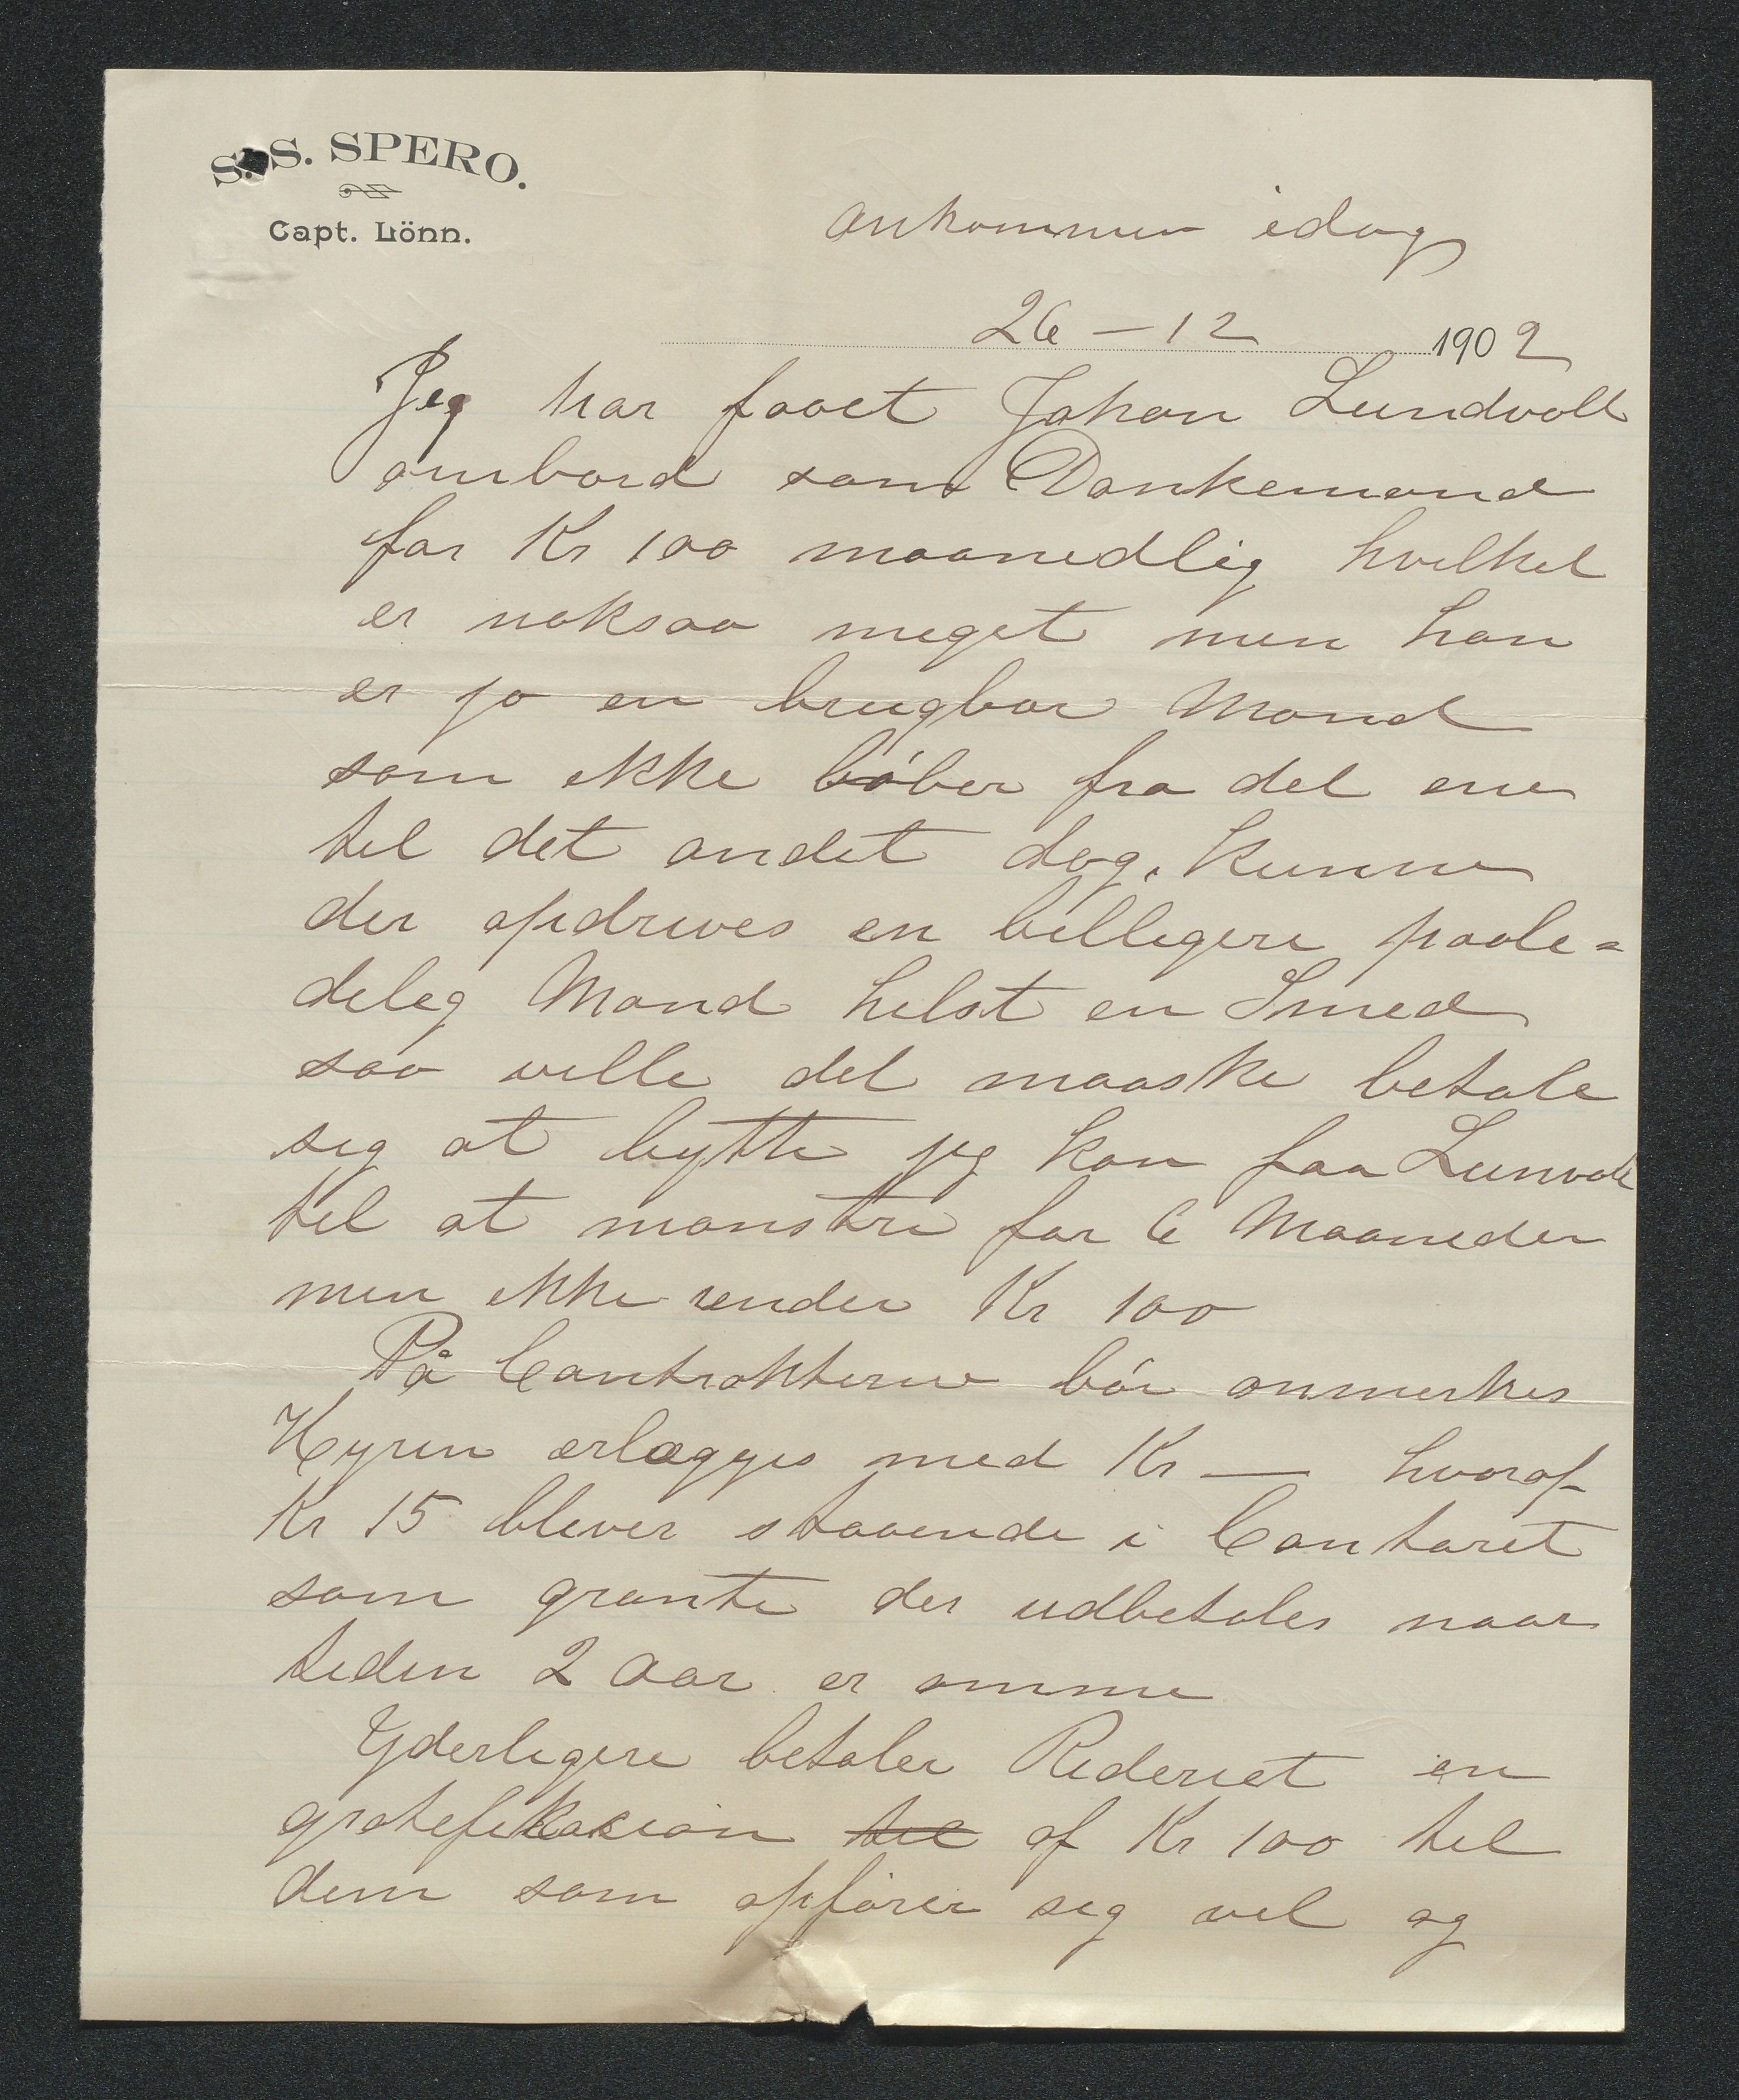 S.S. SPERO.
Capt. Lönn.
ankommen idag
26 – 12 1902
Jeg har faaet Johan Lundvall
ombord som Donkemand
for Kr 100 maanedlig hvilket
er noksaa meget men han
er jo en brugbar Mand
som ikke löber fra det ene
til det andet dog, kunne
der opdrives en billigere paale=
delig Mand helst en Smed
saa ville det maaske betale
sig at bytte jeg kan faa Lunvall
til at mønstre for 6 Maaneder
men ikke under Kr 100
På Contrakterne bör anmerkes
Hyren erlægges med Kr — hvoraf
Kr 15 bliver staaende i Contoret
som grante der udbetales naar
tiden 2 aar er omme
Yderligere betaler Rederiet en
gratefikasion til af Kr 100 til
dem som opförer sig vel og